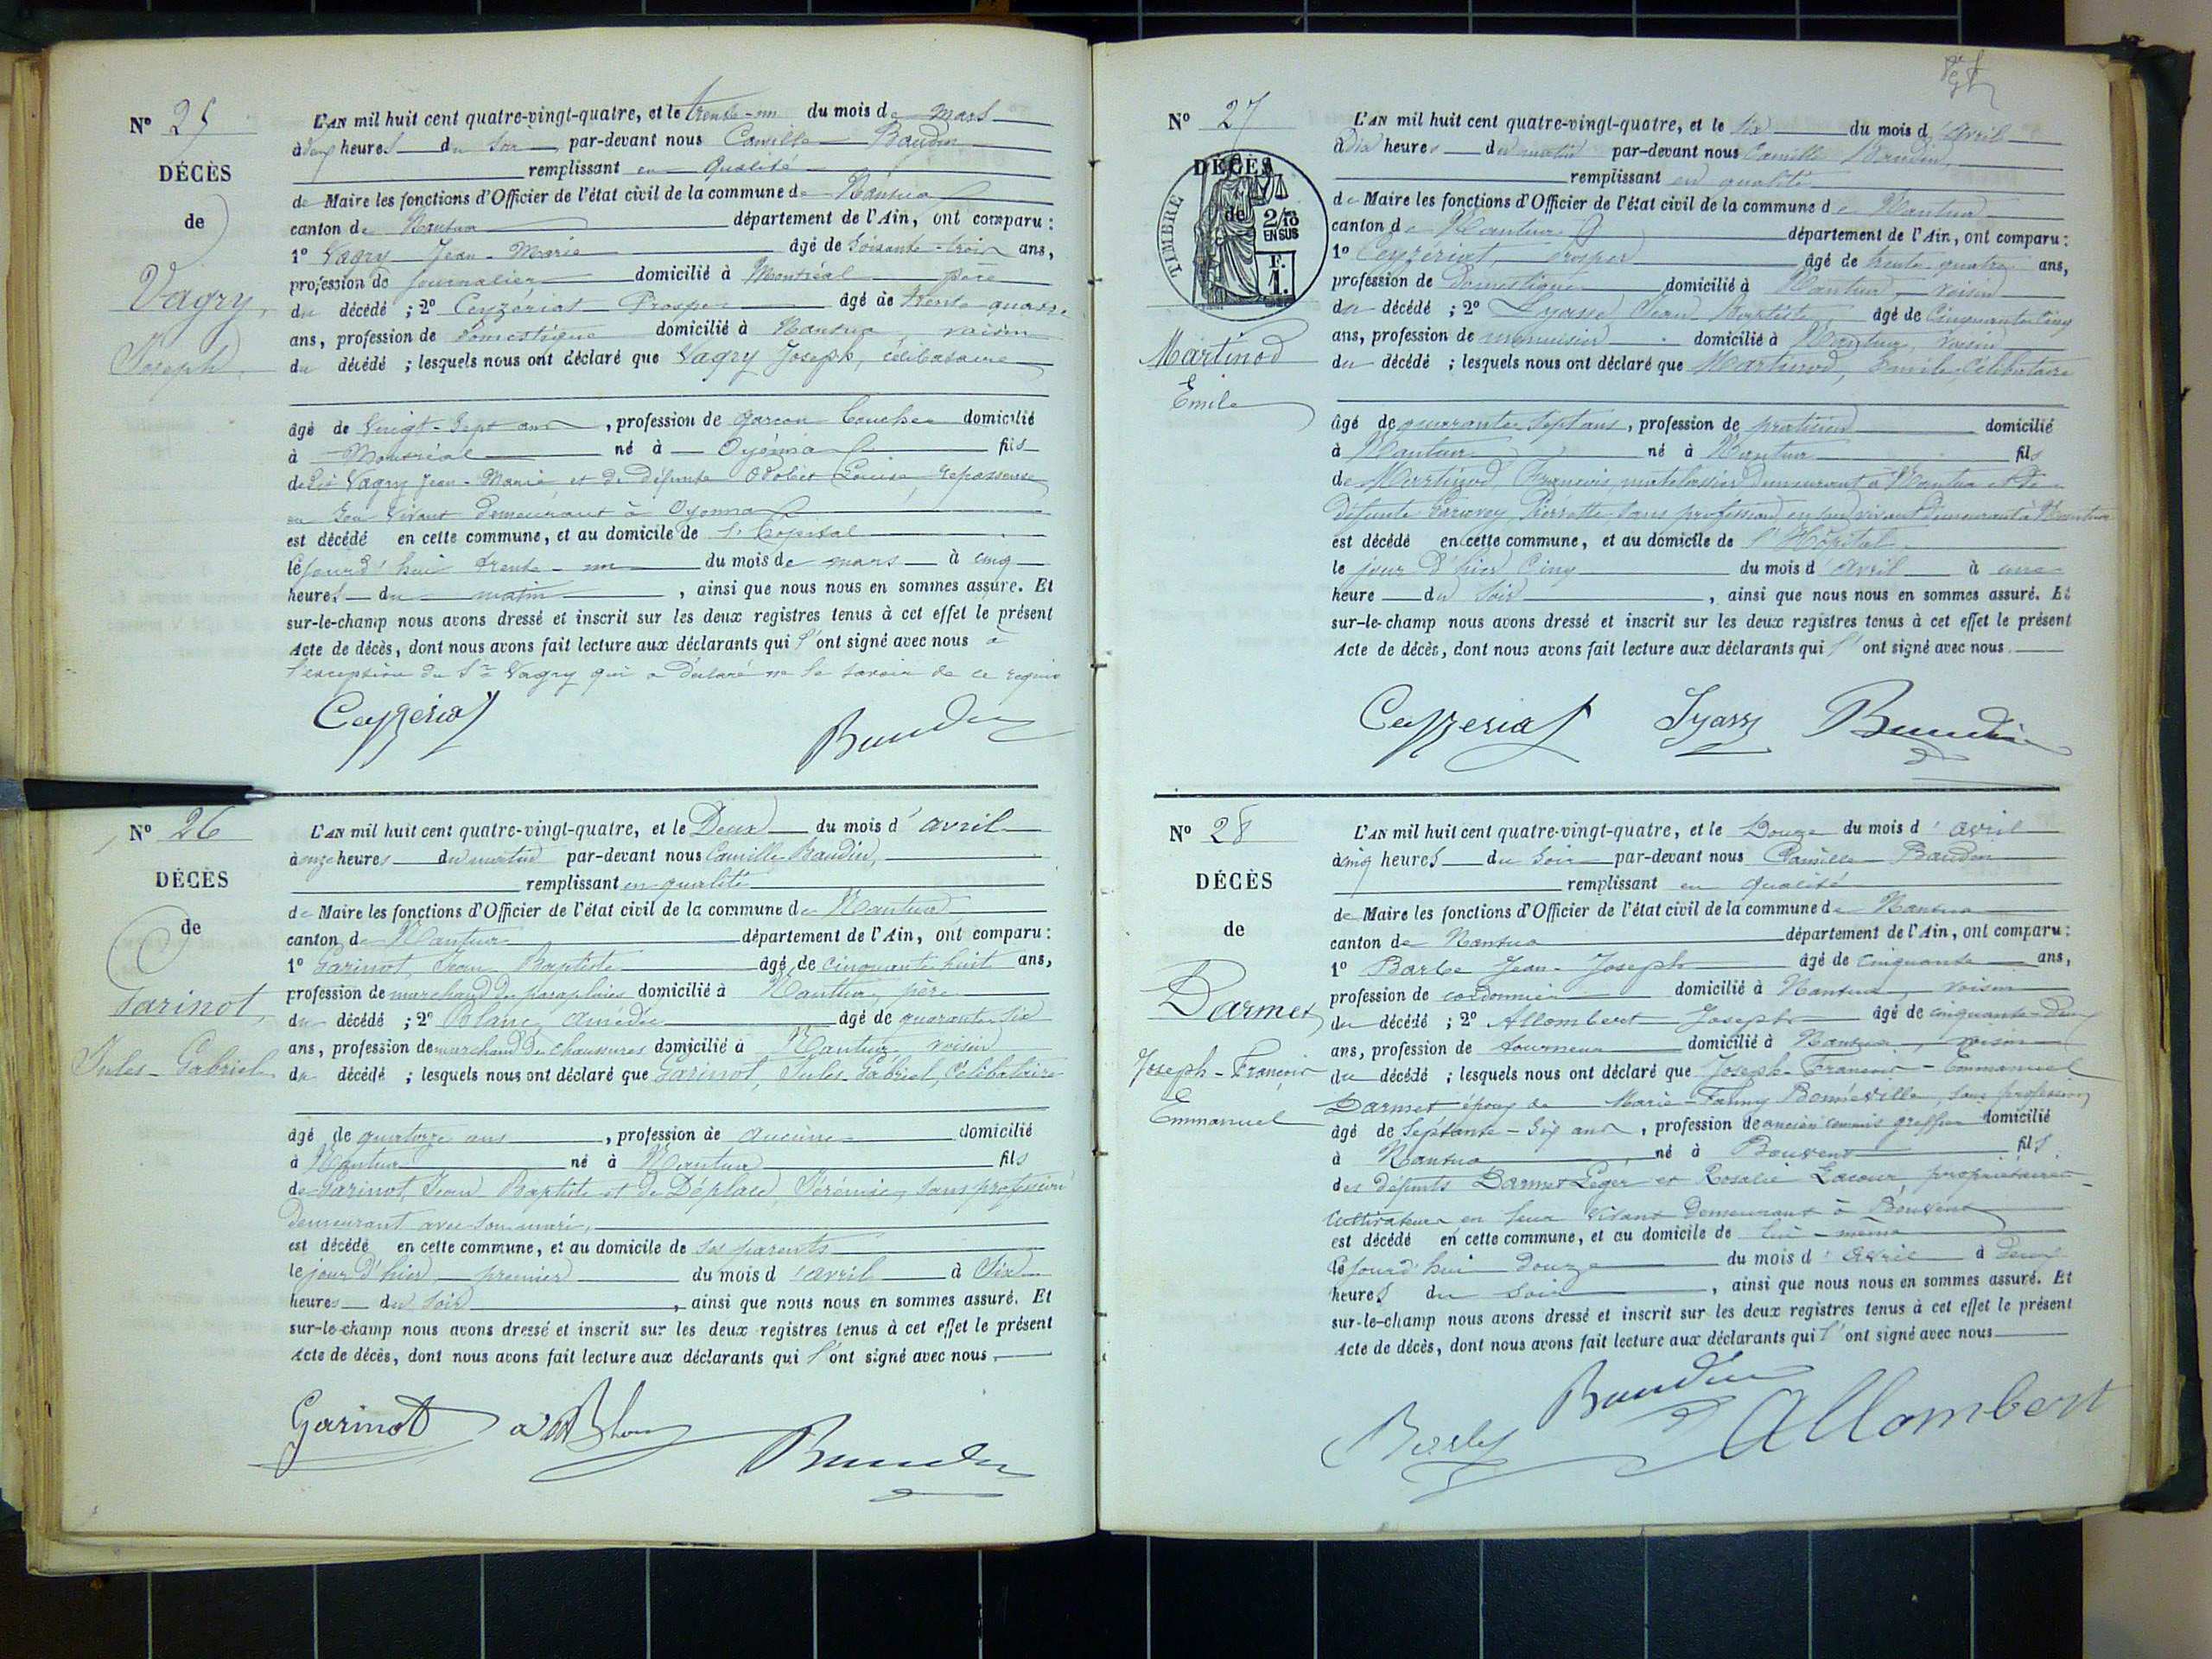 Nº 25
DÉCÈS
de
Vagry,
Joseph
L'AN mil huit cent quatre-vingt-quatre, et le trente-un du mois de Mars
à deux heures du soir par-devant nous Camille Baudin
remplissant en qualité
de Maire les fonctions d'Officier de l'état civil de la commune de Nantua
canton de Nantua département de l'Ain, ont comparu :
1º Vagry Jean-Marie âgé de soixante-trois ans,
profession de journalier domicilié à Montréal père
du décédé ; 2º Ceyzériat Prosper âgé de trente quatre
ans, profession de Domestique domicilié à Nantua voisin
du décédé ; lesquels nous ont déclaré que Vagry Joseph, célibataire
âgé de vingt-sept ans, profession de garçon boucher domicilié
à Montréal né à Oyonnax fils
de Vagry Jean-Marie et de défunte Odobez Louise, repasseuse
en son vivant demeurant à Oyonnax
est décédé en cette commune, et au domicile de l'hôpital
le jourd'hui trente-un du mois de mars à cinq
heures du matin, ainsi que nous nous en sommes assuré. Et
sur-le-champ nous avons dressé et inscrit sur les deux registres tenus à cet effet le présent
Acte de décès, dont nous avons fait lecture aux déclarants qui l'ont signé avec nous à
l'exception du Sr Vagry qui a déclaré ne le savoir de ce requis
Ceyzeriat Baudin
Nº 26
DÉCÈS
de
Garinot,
Jules-Gabriel
L'AN mil huit cent quatre-vingt-quatre, et le Deux du mois d'avril
à onze heures du matin par-devant nous Camille Baudin,
remplissant en qualité
de Maire les fonctions d'Officier de l'état civil de la commune de Nantua
canton de Nantua département de l'Ain, ont comparu :
1º Garinot Jean Baptiste âgé de cinquante huit ans,
profession de marchand de parapluies domicilié à Nantua, père
du décédé ; 2º Blanc, Amédée âgé de quarante six
ans, profession de marchand de chaussures domicilié à Nantua voisin
du décédé ; lesquels nous ont déclaré que Garinot, Jules-Gabriel, Célibataire
âgé de quatorze ans, profession de aucune domicilié
à Nantua né à Nantua fils
de Garinot, Jean Baptiste et de Déplace, Jérémie, sans profession
demeurant avec son mari,
est décédé en cette commune, et au domicile de ses parents
le jour d'hier premier du mois d'avril à six
heures du soir, ainsi que nous nous en sommes assuré. Et
sur-le-champ nous avons dressé et inscrit sur les deux registres tenus à cet effet le présent
Acte de décès, dont nous avons fait lecture aux déclarants qui l'ont signé avec nous.
Garinot Baudin
Nº 27
DÉCÈS
de
TIMBRE
2/10 EN SUS
F. 1.
Martinod
Emile
L'AN mil huit cent quatre-vingt-quatre, et le six du mois d'avril
à dix heures du matin par-devant nous Camille Baudin,
remplissant en qualité
de Maire les fonctions d'Officier de l'état civil de la commune de Nantua
canton de Nantua département de l'Ain, ont comparu :
1º Ceyzériat, Prosper âgé de trente quatre ans,
profession de Domestique domicilié à Nantua, voisin
du décédé ; 2º Jean Baptiste âgé de Cinquante Cinq
ans, profession de menuisier domicilié à Nantua, voisin
du décédé ; lesquels nous ont déclaré que Martinod, Emile, Célibataire
âgé de quarante sept ans, profession de praticien domicilié
à Nantua né à Nantua fils
de Martinod, François, matelassier demeurant à Nantua et de
défunte Pierrette, sans profession, en son vivant demeurant à Nantua
est décédé en cette commune, et au domicile de l'Hôpital
le jour d'hier Cinq du mois d'avril à une
heure du soir, ainsi que nous nous en sommes assuré. Et
sur-le-champ nous avons dressé et inscrit sur les deux registres tenus à cet effet le présent
Acte de décès, dont nous avons fait lecture aux déclarants qui l'ont signé avec nous.
Ceyzeriat Baudin
Nº 28
DÉCÈS
de
Darmet
Joseph-François
Emmanuel
L'AN mil huit cent quatre-vingt-quatre, et le Douze du mois d'avril
à cinq heures du soir par-devant nous Camille Baudin
remplissant en qualité
de Maire les fonctions d'Officier de l'état civil de la commune de Nantua
canton de Nantua département de l'Ain, ont comparu :
1º Barbe Jean-Joseph âgé de cinquante ans,
profession de cordonnier domicilié à Nantua, voisin
du décédé ; 2º Allombert Joseph âgé de cinquante-deux
ans, profession de tourneur domicilié à Nantua, voisin
du décédé ; lesquels nous ont déclaré que Joseph-François-Emmanuel
Darmet époux de Marie-Fanny Bonneville, sans profession
âgé de septante-six ans, profession de ancien commis greffier domicilié
à Nantua né à Bouvent fils
des défunts Darmet Léger et Rosalie Lacour, propriétaires-
Cultivateurs en leur vivant demeurant à Bouvent
est décédé en cette commune, et au domicile de lui-même
le jourd'hui douze du mois d'avril à deux
heures du soir, ainsi que nous nous en sommes assuré. Et
sur-le-champ nous avons dressé et inscrit sur les deux registres tenus à cet effet le présent
Acte de décès, dont nous avons fait lecture aux déclarants qui l'ont signé avec nous
Baudin
Allombert